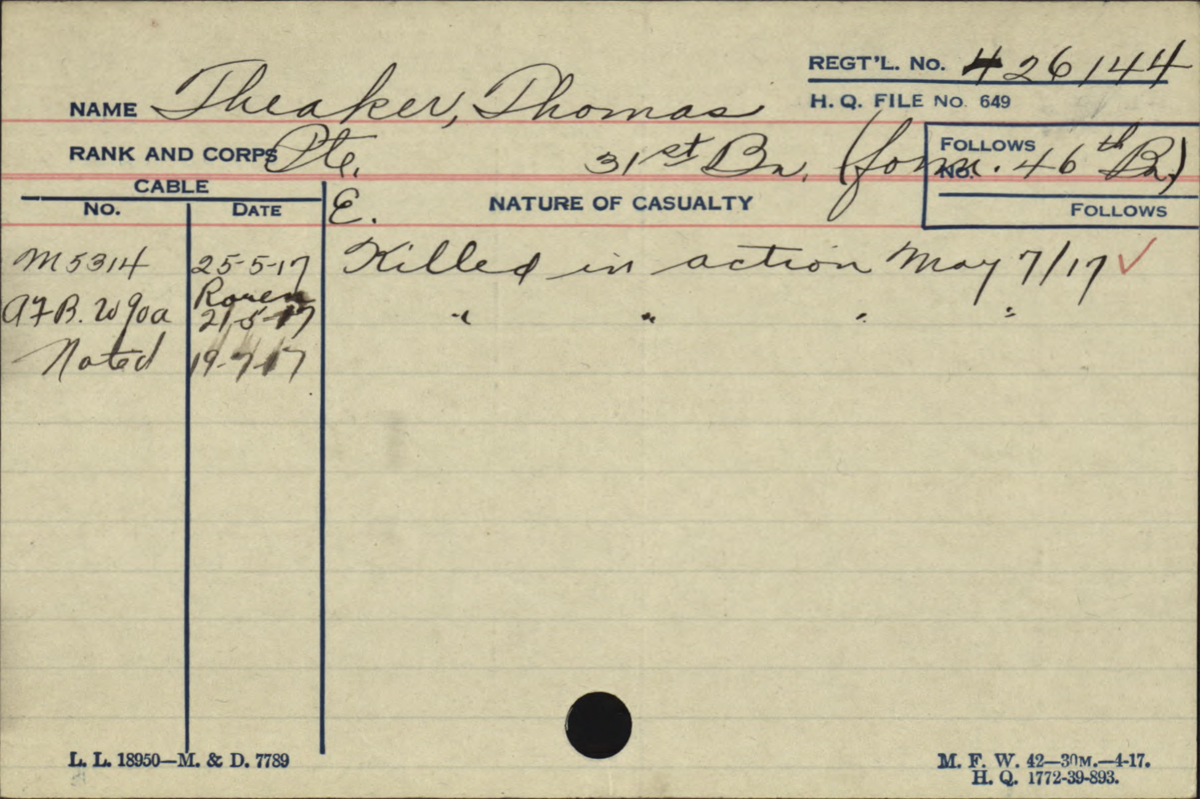 REGT'L. No. 426144
NAME Theaker, Thomas
H. Q. FILE No. 649
RANK AND CORPS Pte. 31st Bn. (form. 46th Bn.)
FOLLOWS
No.
CABLE
FOLLOWS
No. DATE E. NATURE OF CASUALTY
M5314 25-5-17 Killed in action May 7/17 ✓
Rouen
AFB. W90a 21-5-17 " " " "
Noted 19-7-17
L. L. 18950—M. & D. 7789
M. F. W. 42—30M.—4-17.
H. Q. 1772-39-893.